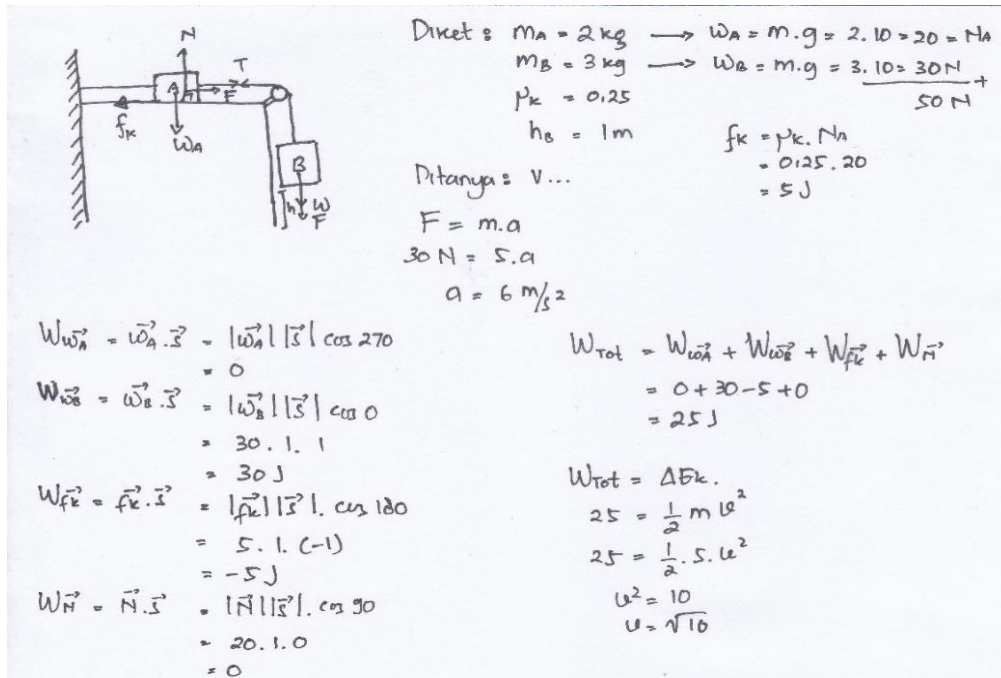 N
T
A
F
fk
WA
B
h
W
F
Diket : mA = 2 kg → WA = m.g = 2.10 = 20 = NA
mB = 3 kg → WB = m.g = 3.10 = 30N +
50 N
μk = 0,25
hB = 1m
fk = μk. NA
= 0,25.20
= 5 J
Ditanya : V...
F = m.a
30 N = 5.a
a = 6 m/s2
W→wA = →wA . →s = |→wA| |→s| cos 270
= 0
W→wB = →wB . →s = |→wB| |→s| cos 0
= 30. 1. 1
= 30 J
W→fk = →fk . →s = |→fk| |→s|. cos 180
= 5. 1. (-1)
= -5 J
W→N = →N . →s = |→N| |→s|. cos 90
= 20.1.0
= 0
WTot = W→wA + W→wB + W→fk + W→N
= 0 + 30 - 5 + 0
= 25 J
WTot = ΔEk.
25 = 1/2 m v²
25 = 1/2 . 5. v²
v² = 10
v = √10